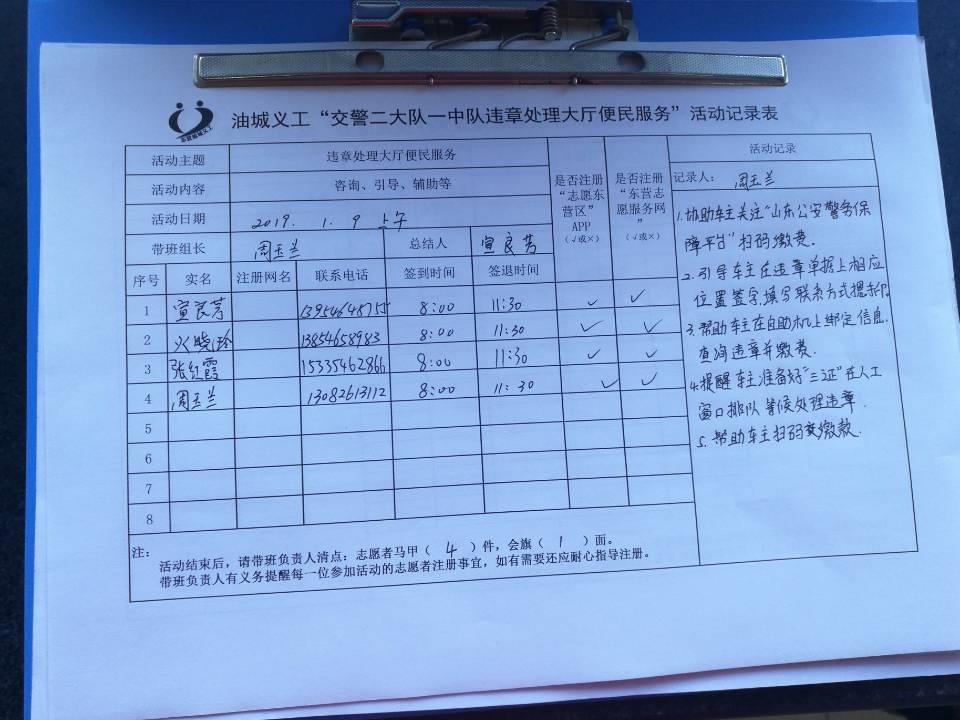 油城义工“交警二大队一中队违章处理大厅便民服务”活动记录表
活动主题 违章处理大厅便民服务
活动内容 咨询、引导、辅助等
活动日期 2019. 1. 9 上午
带班组长 周玉兰 总结人 宣良芳
序号 实名 注册网名 联系电话 签到时间 签退时间
是否注册“志愿东营区”APP（√或×）
是否注册“东营志愿服务网”（√或×）
1 宣良芳 13954648755 8:00 11:30 ✓ ✓
2 火晓玲 13854658983 8:00 11:30 ✓ ✓
3 张红霞 15335462866 8:00 11:30 ✓ ✓
4 周玉兰 13082613112 8:00 11:30 ✓ ✓
5
6
7
8
活动记录
记录人： 周玉兰
1.协助车主关注“山东公安警务保
障平台”扫码缴费.
2.引导车主在违章单据上相应
位置签字,填写联系方式
3.帮助车主在自助机上绑定信息.
查询违章并缴费.
4.提醒车主准备好“三证”在人工
窗口排队等候处理违章.
5.帮助车主扫码交缴款.
注：
活动结束后，请带班负责人清点：志愿者马甲（ 4 ）件，会旗（ 1 ）面。
带班负责人有义务提醒每一位参加活动的志愿者注册事宜，如有需要还应耐心指导注册。